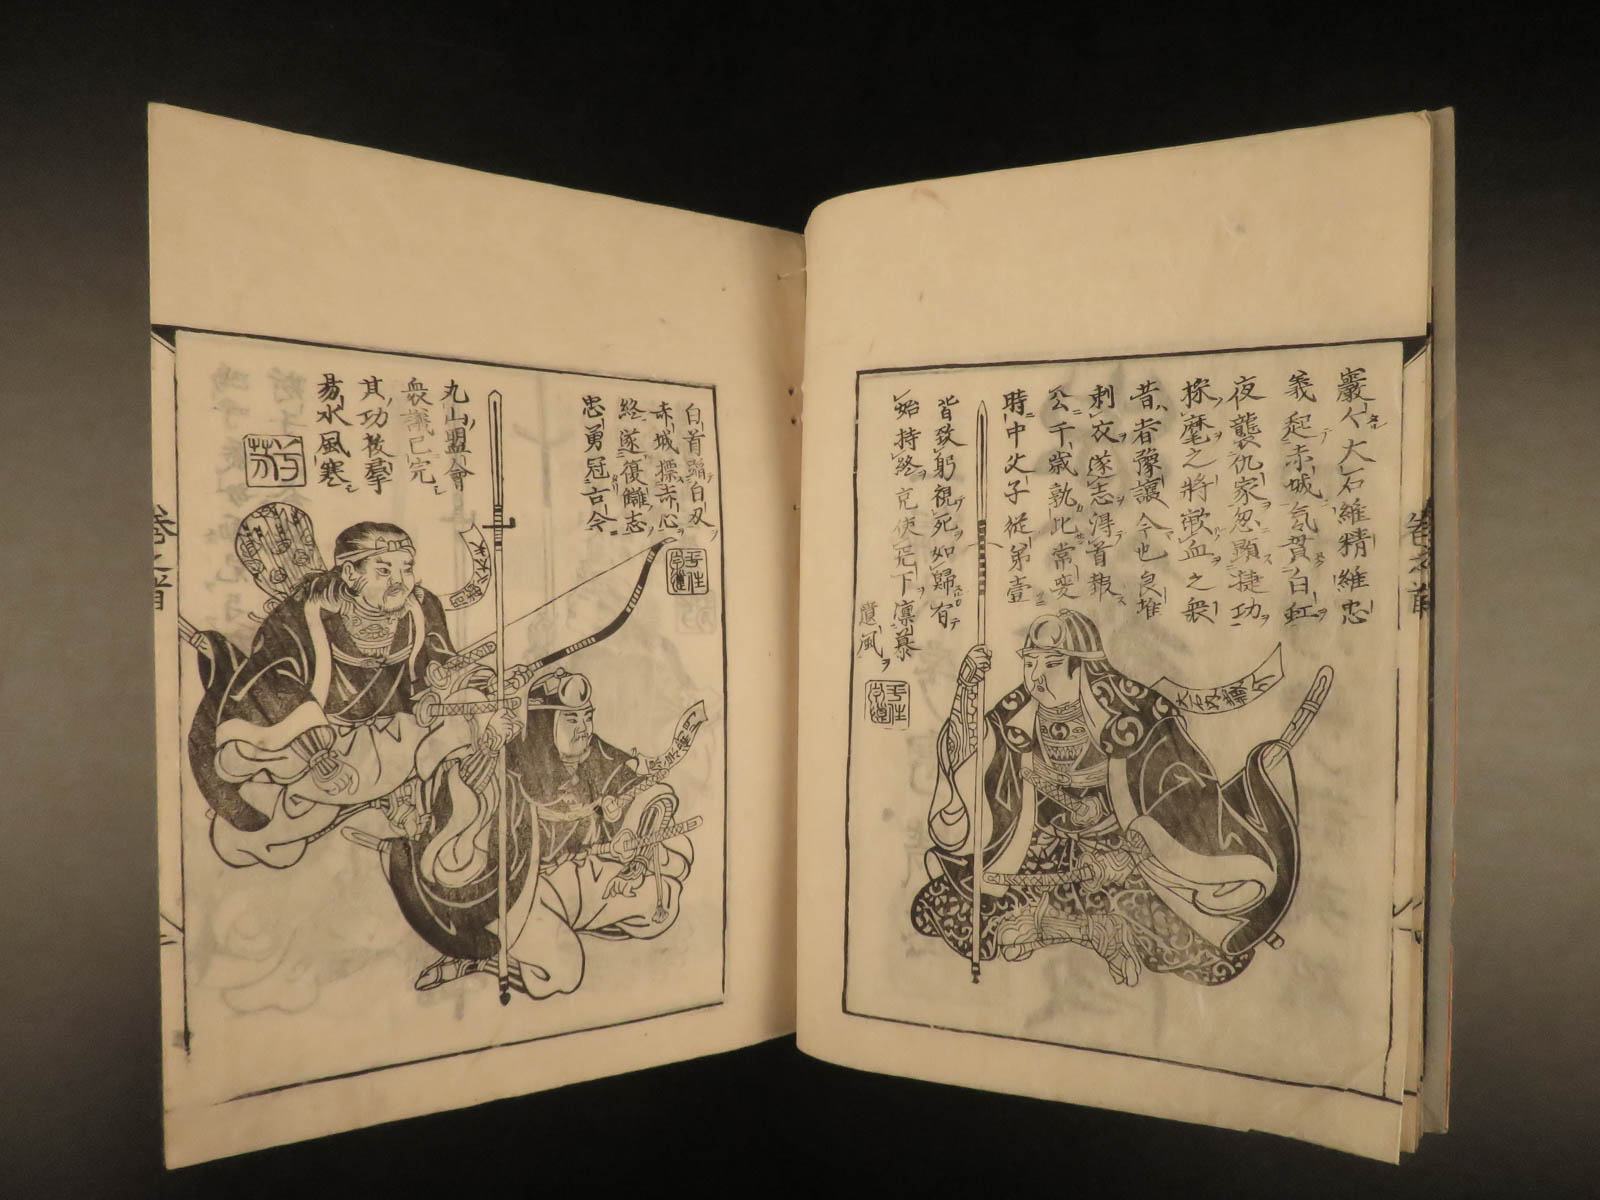 巖々大石維精維忠
義起赤城気貫白虹
夜襲仇家忽顕捷功
採麾之将歃血之衆
昔者豫譲今也良雄
刺衣遂志得首報
公千歳孰比常変
時中父子従弟壹
皆致躬視死如歸有
始持終克使天下凛慕
遺風
白首踏白刃
赤城標赤心
終遂復讎志
忠勇冠古今
丸山盟會
衆議已完
其功抜羣
易水風寒
巻之首